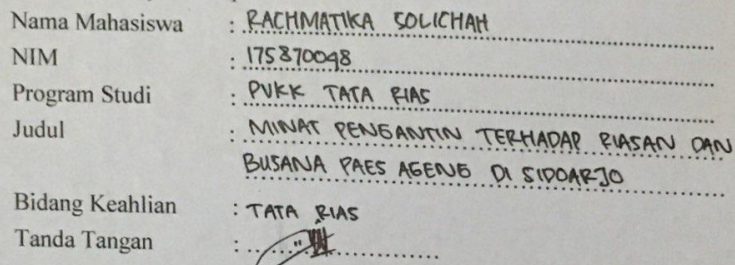 Nama Mahasiswa : RACHMATIKA SOLICHAH
NIM : 175870098
Program Studi : PVKK TATA RIAS
Judul : MINAT PENGANTIN TERHADAP RIASAN DAN
BUSANA PAES AGENG DI SIDOARJO
Bidang Keahlian : TATA RIAS
Tanda Tangan :